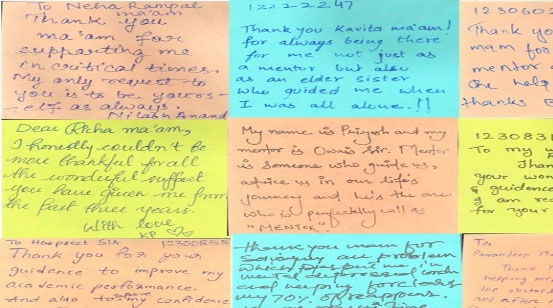 To Neha Rampal
ma'am
Thank you
ma'am for
supporting me
in critical times.
My only request to
you is to be yours-
elf as always.
Nilabh Anand
1222-2247
Thank you Kavita ma'am!
for always being there
for me not just as
a mentor but also
as an elder sister
who guided me when
I was all alone.!!
1230602
Thank yo
mam for
mentor
the help
thanks
Dear Richa ma'am,
I honestly couldn't be
more thankful for all
the wonderful support
you have given me from
the past three years.
With love
KP
My name is Priyesh and my
mentor is Owais Sir. Mentor
is someone who guide us,
advice us in our life's
journey and he's the one
who is perfectly call as
"MENTOR".
1230831
To my
Than
your won
& guidence
I am rea
for your
To Harpreet Sir. 12300855
Thank you for your
guidence to improve my
academic performance.
And also my confidence
Thank you mam for
solving all problem
which
and helping for clear
my 70% of reappear.
To,
Pawandeep
Than
helping me
the obstac